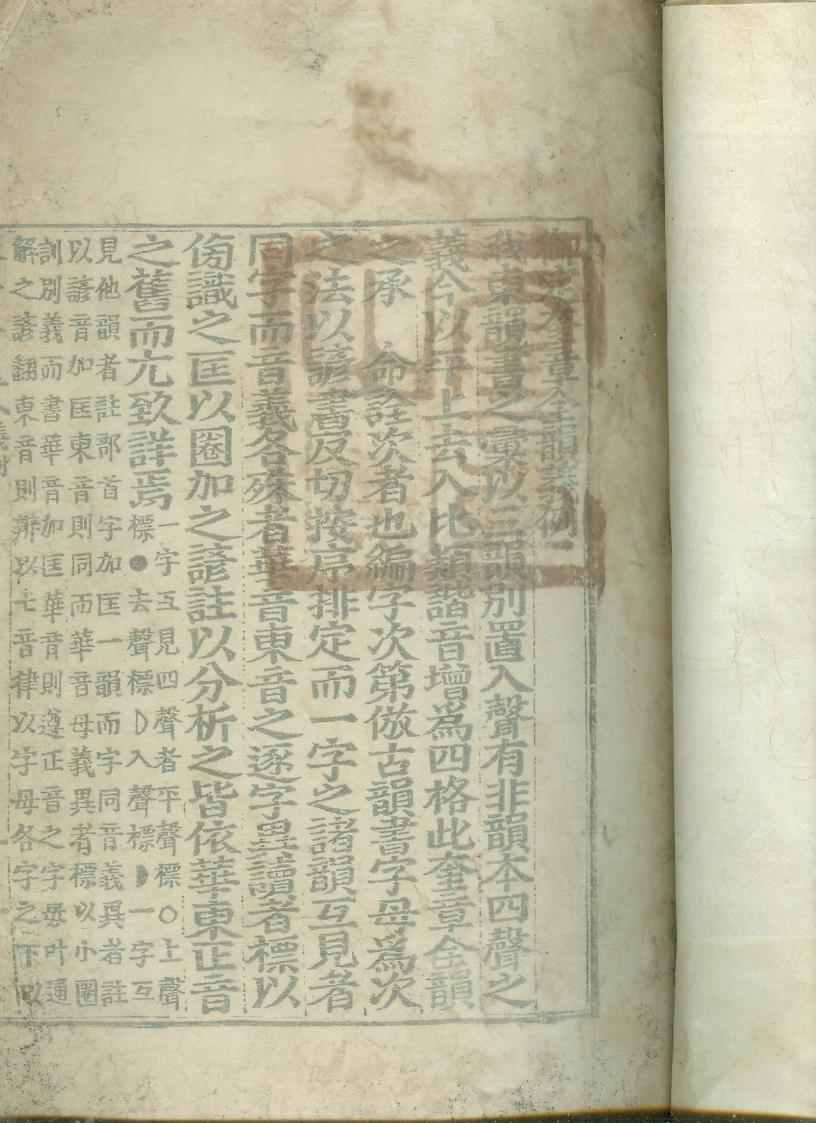 御定奎章全韻義例
我東韻書之彙以三韻別置入聲有非韻本四聲之
義今以平上去入比類諧音增爲四格此奎章全韻
之承 命詮次者也編字次第倣古韻書字母爲次
之法以諺書反切按序排定而一字之諸韻互見者
同字而音義各殊者華音東音之逐字異讀者標以
傍識之匡以圈加之諺註以分析之皆依華東正音
之舊而尤致詳焉
一字互見四聲者平聲標○上聲
標●去聲標☽入聲標◗一字互
見他韻者註部首字加匡一韻而字同音義異者註
以諺音加匡東音則同而華音母義異者標以小圈
訓別義而書華音加匡華音則遵正音之字母叶通
解之諺翻東音則辨以七音律以字母各字之下以